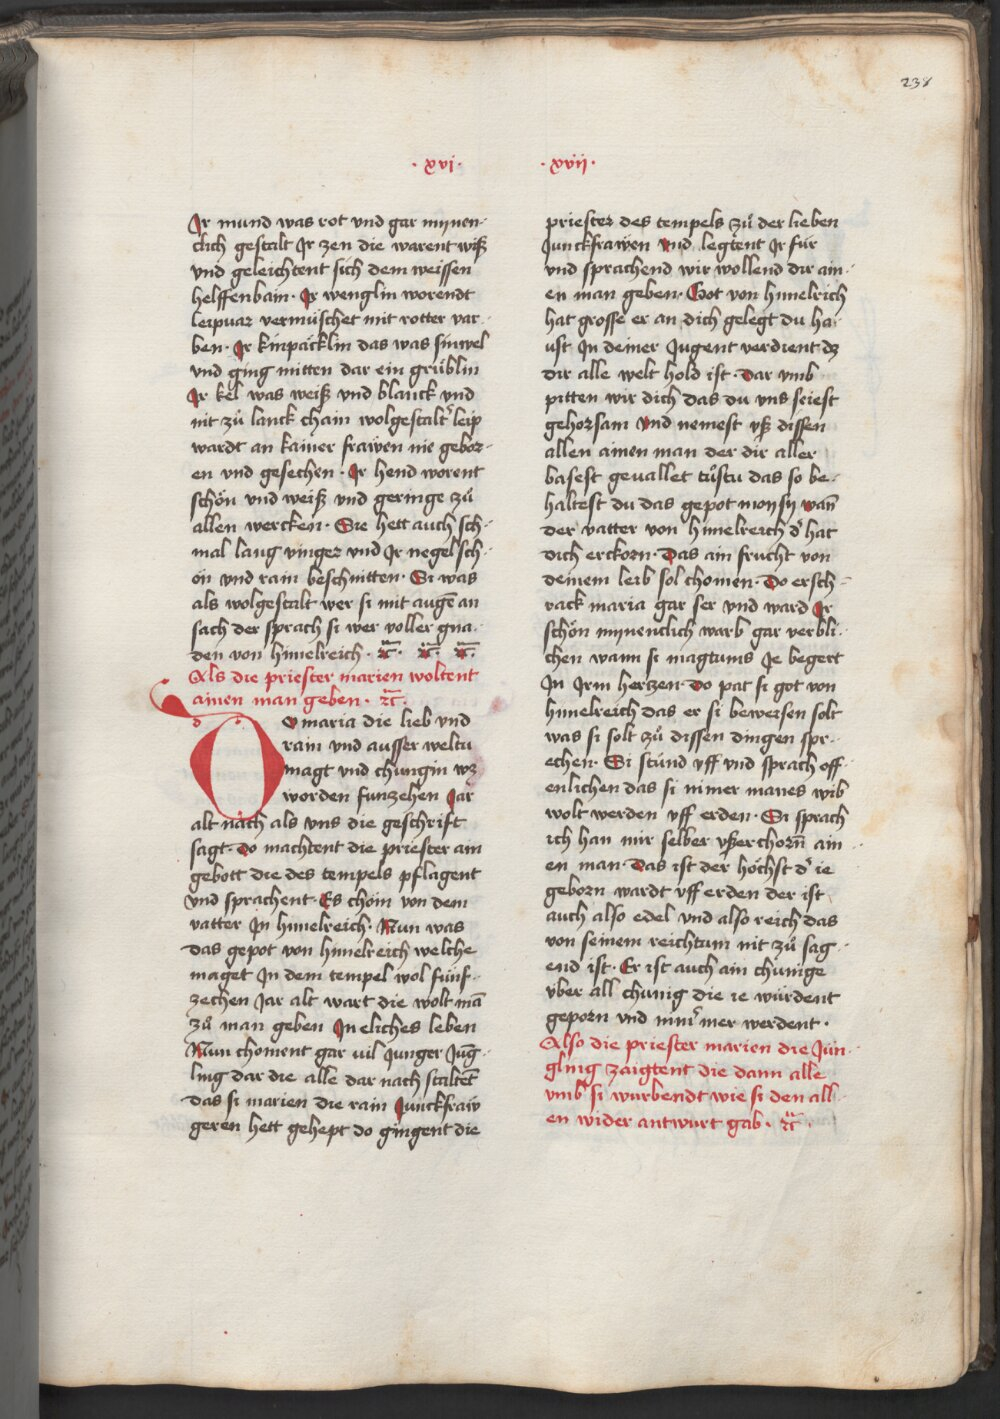 238
· xvi ·
· xvii ·
Jr mund was rot vnd gar mynen-
clich gestalt Jr zen die warent wiß
vnd geleichtent sich dem weissen
helffenbain · Jr wenglin worendt
leipuar vermüschet mit rotter var-
ben · Jr kinpäcklin das was sinwel
vnd ging mitten dar ein grüblin
Jr kel was weiß vnd blanck vnd
nit zů lanck chain wolgestalt leip
wardt an kainer frawen nie gebor-
en vnd gesechen · Jr hend worent
schön vnd weiß vnd geringe zů
allen wercken · Sie hett auch sch-
mal lang vinger vnd Jr negel sch-
ön vnd rain beschnitten · Si was
als wolgestalt wer si mit augē an
sach der sprach si wer voller gna-
den von himelreich · ꝛc̄ · ꝛc̄ · ꝛc̄ ·
Als die priester marien woltent
ainen man geben · ꝛc̄ ·
DO maria die lieb vnd
rain vnd ausser weltu
magt vnd chungin wz
worden funzehen Jar
alt nach als vns die geschrift
sagt · do machtent die priester am
gebott die des tempels pflagent
vnd sprachent Es chöm von dem
vatter Jn himelreich · Nun was
das gepot von himelreich welche
maget Jn dem tempel wol fünf-
zechen Jar alt wart die wolt mā
zů man geben Jn eliches leben
Nun choment gar vil Junger Jūg-
ling dar die alle dar nach staltēt
das si marien die rain Junckfraw
geren hett gehept do gingent die
priester des tempels zů der lieben
Junckfrawen vnd legtent Jr für
vnd sprachend wir wollend dir ain-
en man geben · Got von himelrich
hat grosse er an dich gelegt du ha-
ust Jn deiner Jugent verdient dz
dir alle welt hold ist · dar vmb
pitten wir dich das du vns seiest
gehorsam vnd nemest vß dissen
allen ainen man der dir aller
basest geuallet tůstu das so be-
haltest du das gepot moysy wan̄
der vatter von himelreich d' hat
dich erckorn · das ain frucht von
deinem leib sol chomen · do ersch-
rack maria gar ser vnd ward Jr
schön mynenclich warb gar verbli-
chen wann si magtums Je begert
Jn Jrm hertzen · do pat si got von
himelreich das er si bewersen solt
was si solt zů dissen dingen spr-
echen · Si stůnd vff vnd sprach off-
enlichen das si nimer manes wib
wolt werden vff erden · Si sprach
ich han mir selber vßerchorn̄ ain-
en man · das ist der höchst d' ie
geborn wardt vff erden der ist
auch also edel vnd also reich das
von seinem reichtum nit zů sag-
end ist · Er ist auch ain chunige
vber all chunig die ie würdent
geporn vnd nimer mer werdent ·
Also die priester marien die Jün-
gling zaigtent die dann alle
vmb si wurbendt wie si den all-
en wider antwurt gab · ꝛc̄ ·